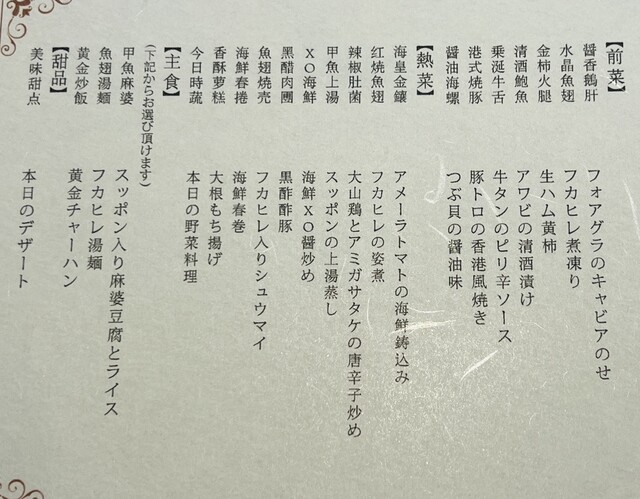 【前菜】
醬香鵝肝 フォアグラのキャビアのせ
水晶魚翅 フカヒレ煮凍り
金柿火腿 生ハム黄柿
清酒鮑魚 アワビの清酒漬け
乘涎牛舌 牛タンのピリ辛ソース
港式燒豚 豚トロの香港風焼き
醬油海螺 つぶ貝の醤油味
【熱菜】
海皇金鑲 アメーラトマトの海鮮鋳込み
红燒魚翅 フカヒレの姿煮
辣椒肚菌 大山鶏とアミガサタケの唐辛子炒め
甲魚上湯 スッポンの上湯蒸し
XO海鮮 海鮮XO醤炒め
黑醋肉團 黒酢酢豚
魚翅焼売 フカヒレ入りシュウマイ
海鮮春捲 海鮮春巻
香酥萝糕 大根もち揚げ
今日時蔬 本日の野菜料理
【主食】
(下記からお選び頂けます)
甲魚麻婆 スッポン入り麻婆豆腐とライス
魚翅湯麺 フカヒレ湯麺
黄金炒飯 黄金チャーハン
【甜品】
美味甜点 本日のデザート